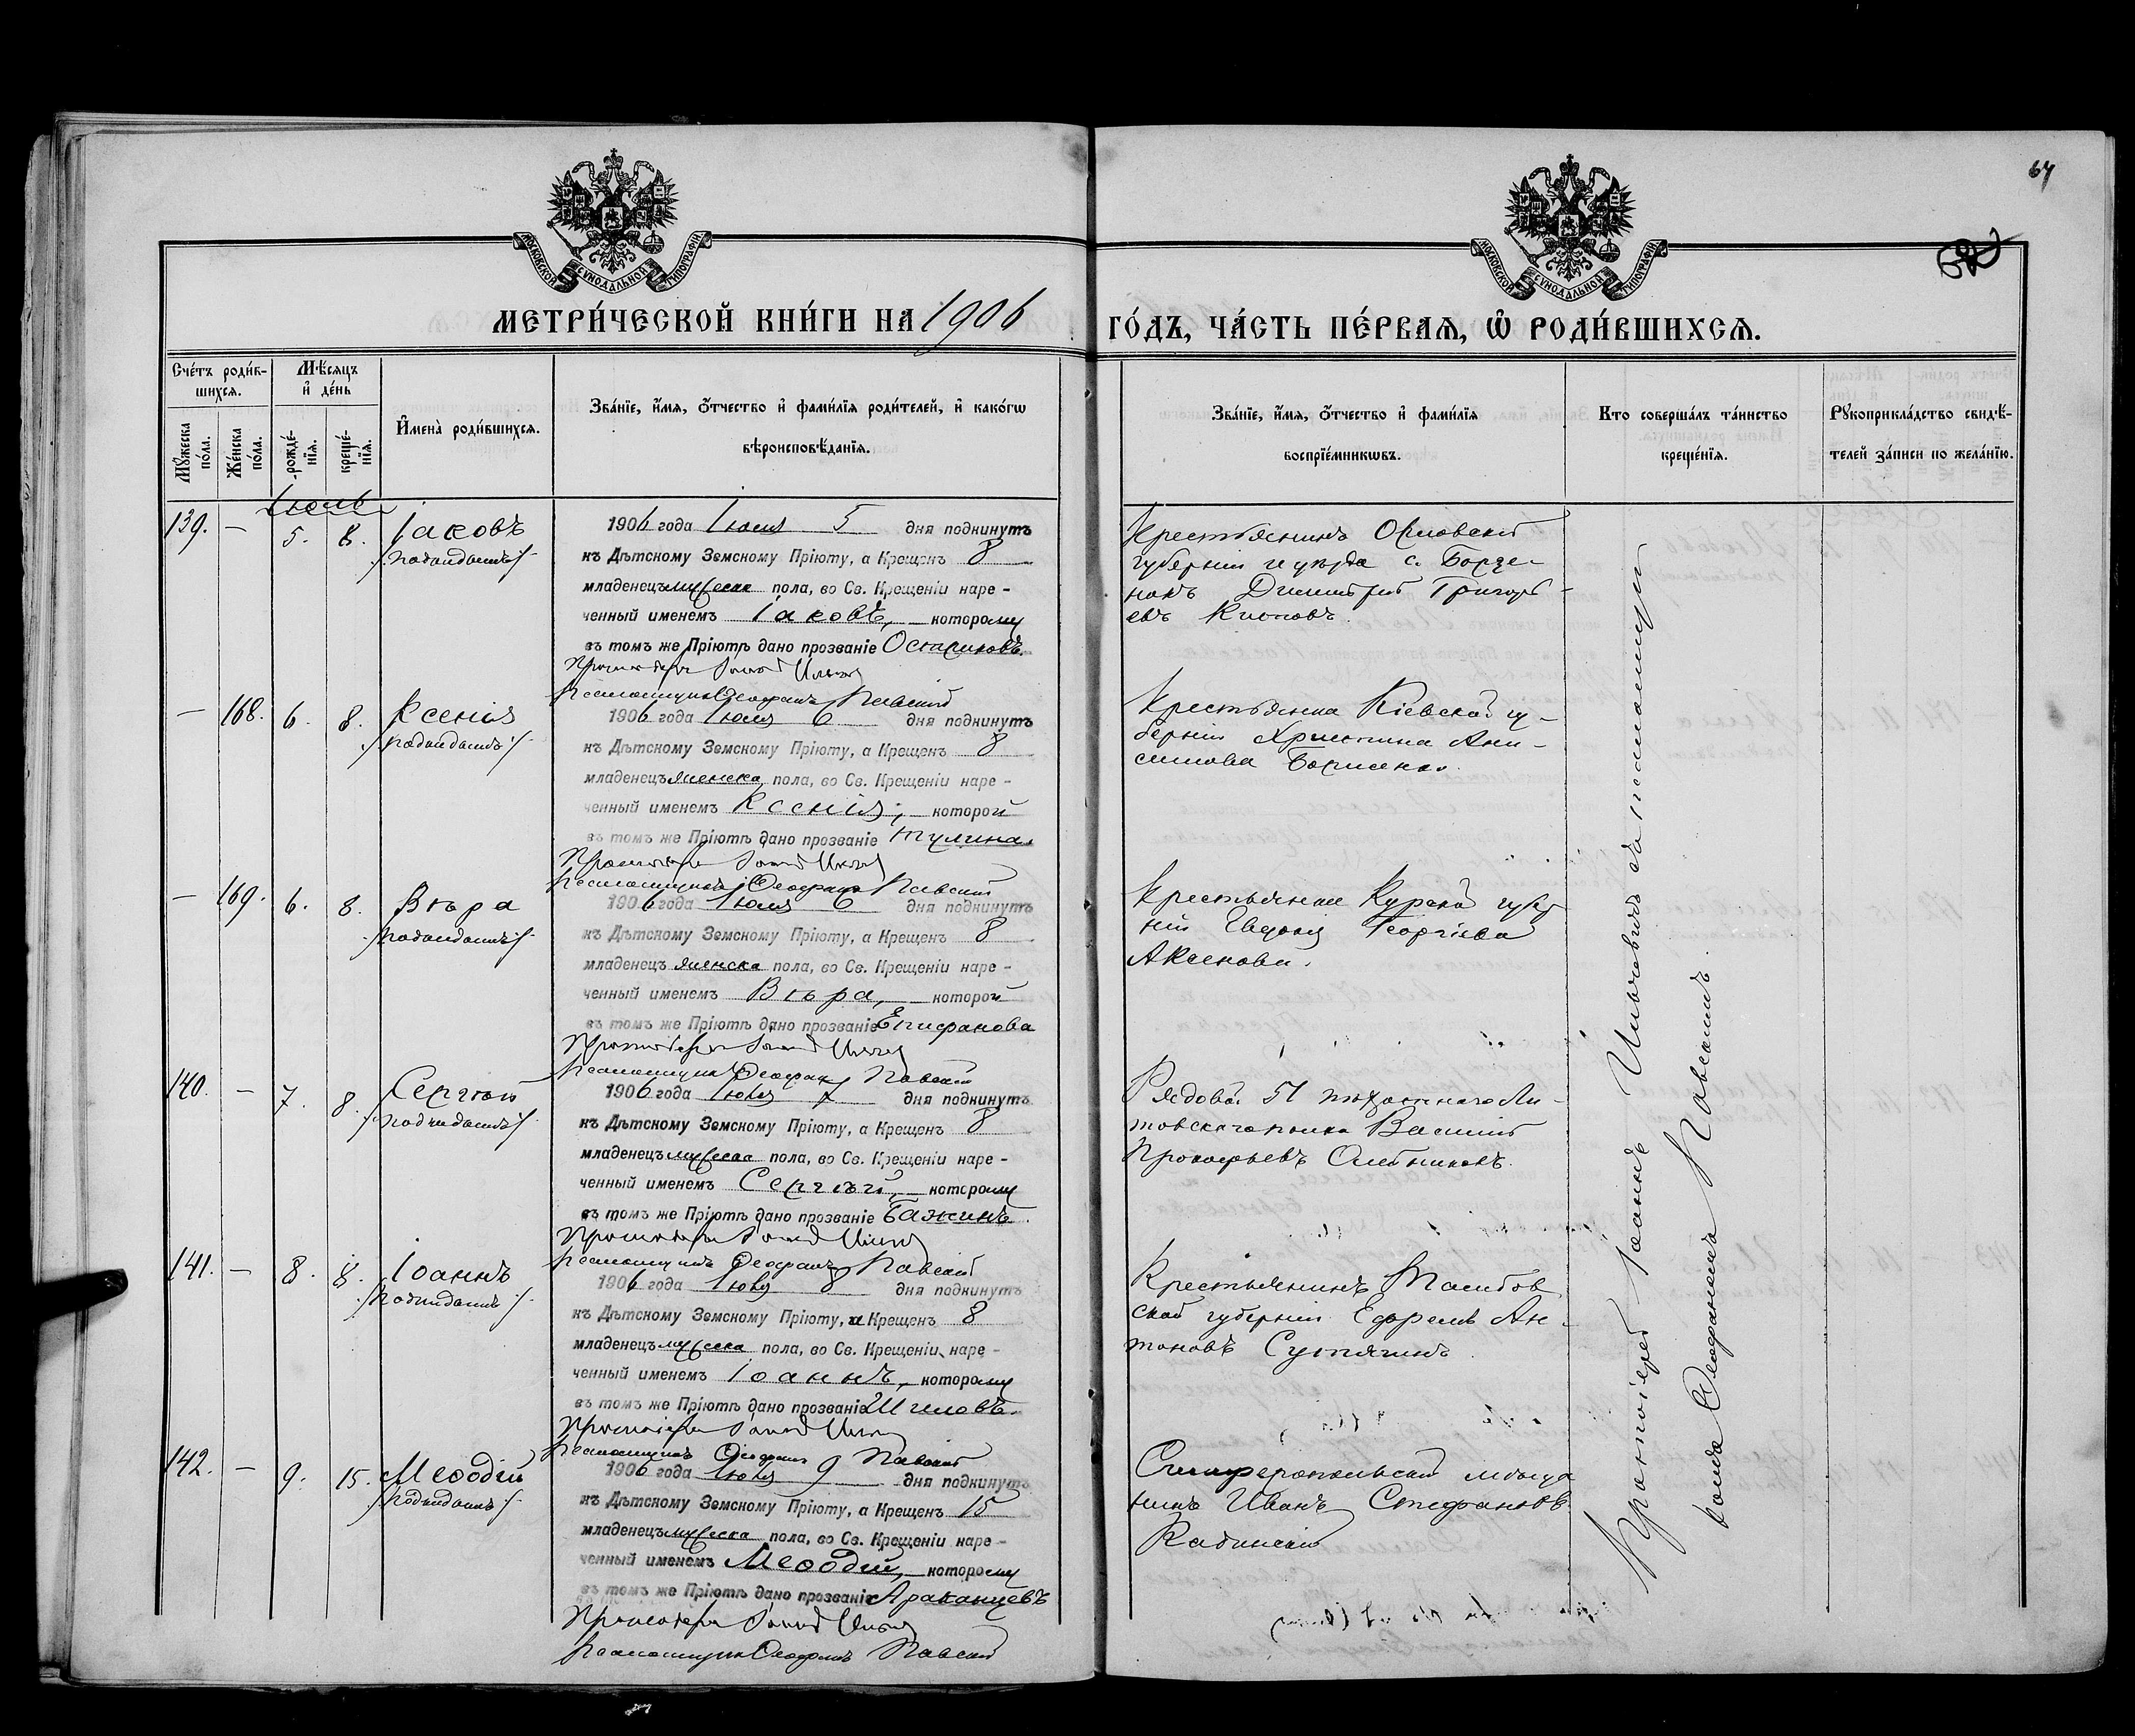 МОСКОВСКОЙ СѴНОДАЛЬНОЙ ТИПОГРАФІИ
МОСКОВСКОЙ СѴНОДАЛЬНОЙ ТИПОГРАФІИ
64
МЕТРИ́ЧЕСКОЙ КНИ́ГИ НА 1906 ГО́ДЪ, ЧА́СТЬ ПЕ́РВАѦ, Ѡ РОДИ́ВШИХСѦ.
Сче́тъ роди́в-
шихсѧ.
Мѣ́сѧцъ
и де́нь
Мꙋ́жеска
по́ла.
Же́нска
по́ла.
рожде́-
нїѧ.
креще́-
нїѧ.
Имена̀ роди́вшихсѧ.
Зва́нїе, и́мѧ, ѻ́тчество и фами́лїѧ роди́телей, и како́гѡ
вѣроисповѣ́данїѧ.
Зва́нїе, и́мѧ, ѻ́тчество и фами́лїѧ
воспрїе́мникѡвъ.
Кто соверша́лъ та́инство
креще́нїѧ.
Рꙋкоприкла́дство свидѣ́-
телей за́писи по жела́нїю.
Іюль
139. — 5. 8. Іаковъ
/подкидышъ/
1906 года Іюля 5 дня подкинутъ
къ Дѣтскому Земскому Пріюту, а Крещенъ 8
младенецъ мужеска пола, во Св. Крещеніи наре-
ченный именемъ Іаковъ, которому
въ томъ же Пріютѣ дано прозваніе
Протоіерей Іоаннъ
Псаломщикъ Ѳеофанъ Павскій
Крестьянинъ Орловской
губерніи и уѣзда с.
Димитрій Григорь-
евъ
— 168. 6. 8. Ксенія
/подкидышъ/
1906 года Іюля 6 дня подкинутъ
къ Дѣтскому Земскому Пріюту, а Крещенъ 8
младенецъ женска пола, во Св. Крещеніи наре-
ченный именемъ Ксенія, которой
въ томъ же Пріютѣ дано прозваніе Тулина
Протоіерей Іоаннъ
Псаломщикъ Ѳеофанъ Павскій
Крестьянка Кіевской гу-
берніи Христина Ани-
симова
— 169. 6. 8. Вѣра
/подкидышъ/
1906 года Іюля 6 дня подкинутъ
къ Дѣтскому Земскому Пріюту, а Крещенъ 8
младенецъ женска пола, во Св. Крещеніи наре-
ченный именемъ Вѣра, которой
въ томъ же Пріютѣ дано прозваніе Епифанова
Протоіерей Іоаннъ
Псаломщикъ Ѳеофанъ Павскій
Крестьянка Курской губер
ніи Георгіева
Аксенова.
140. — 7. 8. Сергѣй
/подкидышъ/
1906 года Іюля 7 дня подкинутъ
къ Дѣтскому Земскому Пріюту, а Крещенъ 8
младенецъ мужеска пола, во Св. Крещеніи наре-
ченный именемъ Сергѣй, которому
въ томъ же Пріютѣ дано прозваніе Бажинъ.
Протоіерей Іоаннъ
Псаломщикъ Ѳеофанъ Павскій
Рядовой 51 пѣхотнаго Ли-
товскаго полка Василій
Прокофьевъ
141. — 8. 8. Іоаннъ
/подкидышъ/
1906 года Іюля 8 дня подкинутъ
къ Дѣтскому Земскому Пріюту, а Крещенъ 8
младенецъ мужеска пола, во Св. Крещеніи наре-
ченный именемъ Іоаннъ, которому
въ томъ же Пріютѣ дано прозваніе
Протоіерей Іоаннъ
Псаломщикъ Ѳеофанъ Павскій
Крестьянинъ Тамбов
ской губерніи Ефремъ Ан-
тоновъ Сутягинъ.
142. — 9. 15. Меѳодій
/подкидышъ/
1906 года Іюля 9 дня подкинутъ
къ Дѣтскому Земскому Пріюту, а Крещенъ 15
младенецъ мужеска пола, во Св. Крещеніи наре-
ченный именемъ Меѳодій, которому
въ томъ же Пріютѣ дано прозваніе Араканцевъ
Протоіерей Іоаннъ
Псаломщикъ Ѳеофанъ Павскій
Симферопольскій мѣща
нинъ Иванъ Стефановъ
Протоіерей Іоаннъ съ псаломщи
комъ Ѳеофаномъ Павскимъ.